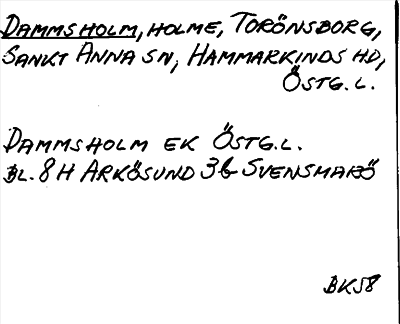 DAMMSHOLM, HOLME, TORÖNSBORG,
SANKT ANNA SN, HAMMARKINDS HD,
ÖSTG. L.
DAMMSHOLM EK ÖSTG. L.
BL. 8H ARKÖSUND 3b SVENSMARÖ
BK58